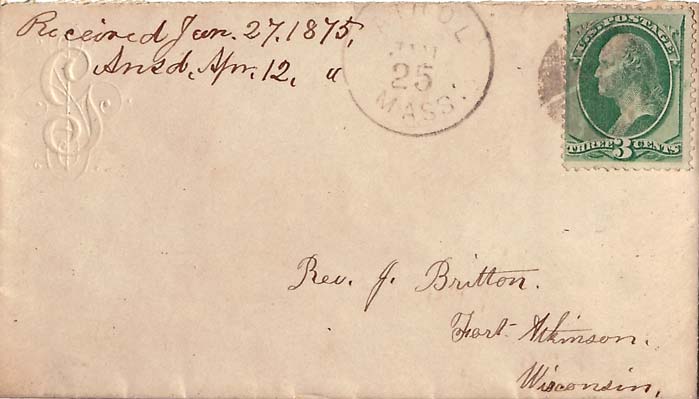 Received Jan. 27. 1875,
Ansd, Apr. 12, "
ATHOL
JAN
25
MASS.
U.S. POSTAGE
THREE 3 CENTS
Rev. J. Britton.
Fort Atkinson.
Wisconsin,